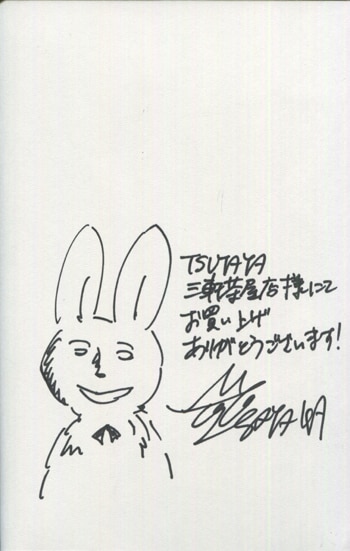 TSUTAYA
三軒茶屋店様にて
お買い上げ
ありがとうございます!